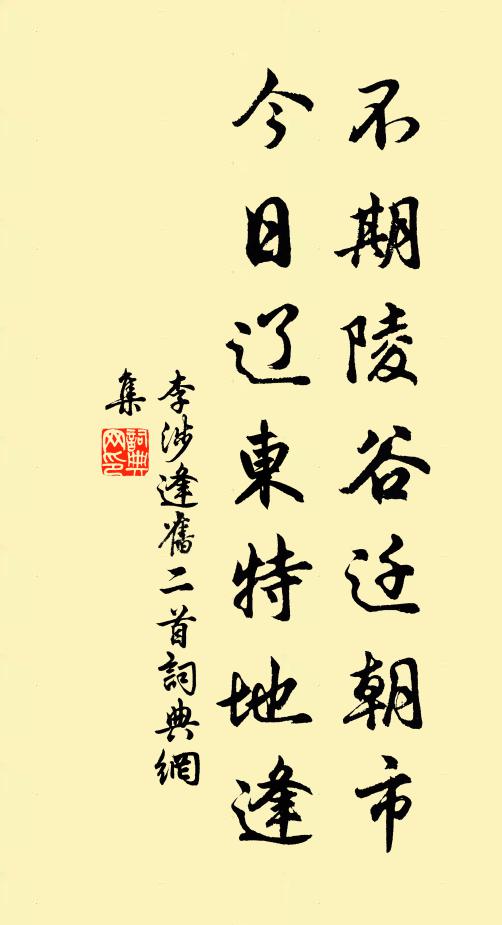 不期陵谷迁朝市
今日辽東特地逢
李涉逢舊二首詞典網
集
詞典
网印